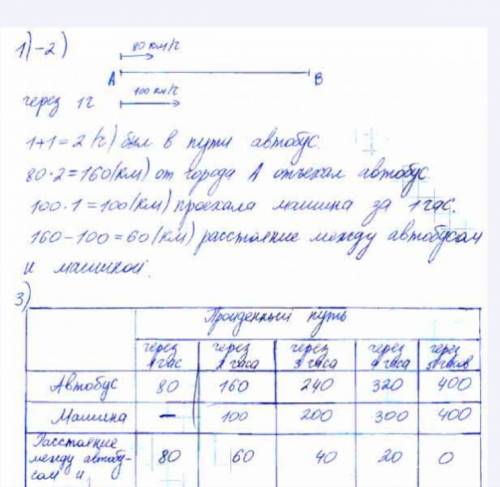 1)-2)
80 км/г
А В
через 1г 100 км/г
1+1=2(г) был в пути автобус.
80·2=160(км) от города А отъехал автобус.
100·1=100(км) проехала машина за 1 час.
160-100=60(км) расстояние между автобусом
и машиной.
3)
Пройденный путь
через 1 час через 2 часа через 3 часа через 4 часа через 5 часов
Автобус 80 160 240 320 400
Машина – 100 200 300 400
Расстояние
между автобу-
сом и 80 60 40 20 0